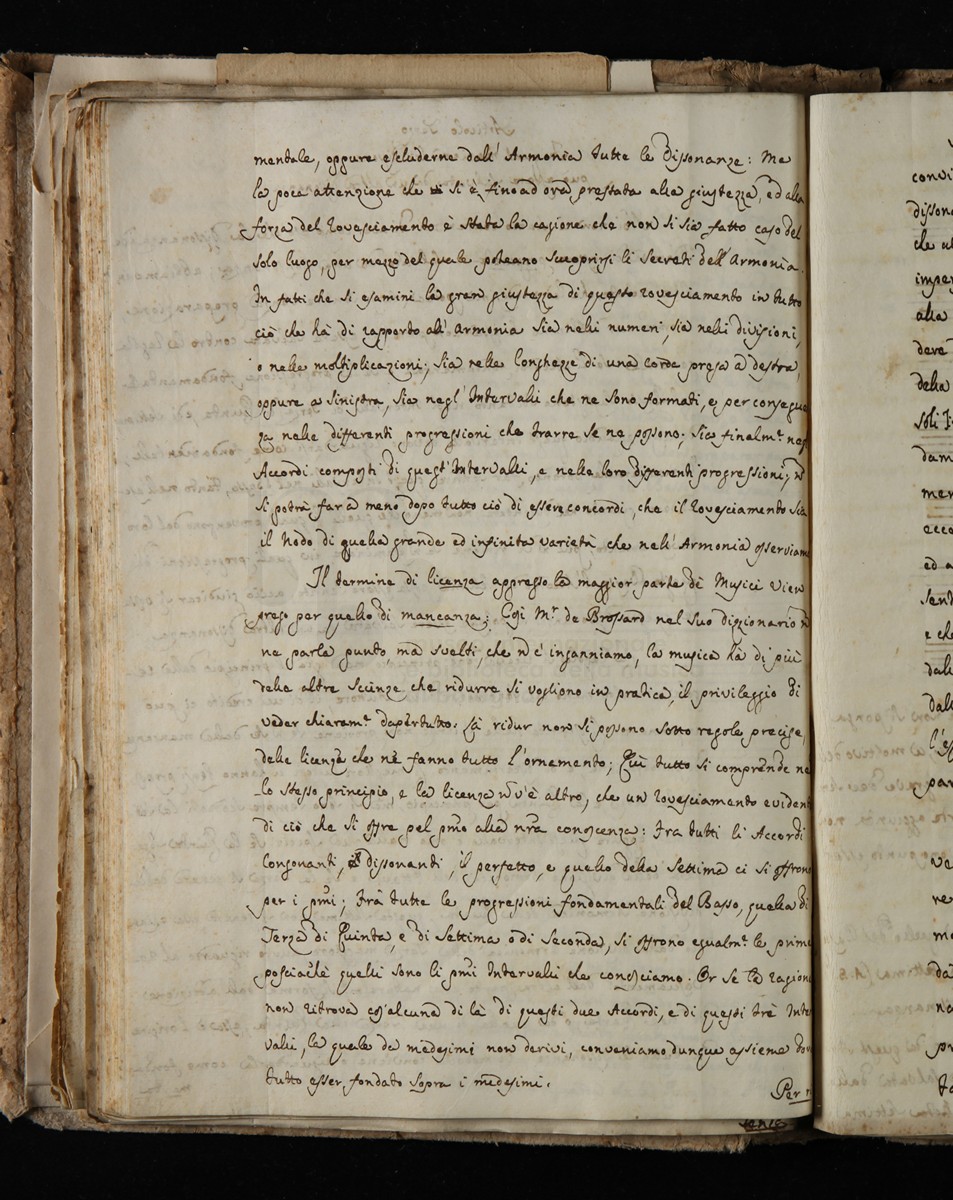 mentale, oppure escluderne dall' Armonia tutte le Dissonanze: Ma
la poca attenzione che si è finoad ora prestata alla giustezza, ed alla
forza del rovesciamento è stata la cagione che non si sia fatto caso del
solo luogo, per mezzo del quale poteano scuoprirsi li Secreti dell'Armonia.
In fatti che si esamini la gran giustezza di questo rovesciamento in tutto
ciò che hà di rapporto all' armonia sia nelli numeri, sia nelli divisioni,
o nelle moltiplicazioni; sia nelle longhezze di una corda presa a destra,
oppure a sinistra, sia negl' Intervalli che ne sono formati, e per consegue
za nelle differenti progressioni che trarre se ne possono; sia finalm.e neg
Accordi composti di quest' Intervalli, e nelle loro differenti progressioni; ñ
si potrà far a meno dopo tutto ciò di essere concordi, che il rovesciamento sia
il Nodo di quella grande ed infinita varietà che nell' Armonia osserviam
Il termine di licenza appresso la maggior parte di Musici vien
preso per quello di mancanza; Così M.r de Brossard nel suo dizzionario ñ
ne parla punto, mà svelti, che ñ c'inganniamo, la musica hà di più
delle altre scienze che ridurre si vogliono in pratica, il privileggio di
veder chiaram.e dapertutto. ridur non si possono sotto regole precise,
delle licenze che ne fanno tutto l'ornamento; Qui tutto si comprende ne
lo stesso principio, e la licenza ñ v'è altro, che un rovesciamento evident
di ciò che si offre pel pmo alla nra conoscenza: tra tutti li Accordi
Consonanti, dissonanti, il perfetto, e quello della Settima ci si offrono
per i pmi; trà tutte le progressioni fondamentali del Basso, quella di
Terza di Quinta, e di Settima o di Seconda, si offrono egualm.e le prime
posciachè quelli sono li pmi Intervalli che conosciamo. Or se la ragione
non ritrova cos'alcuna di là di questi due Accordi, e di questi trè Inter
valli, la quale da medesimi non derivi, conveniamo dunque assieme dov
tutto esser fondato sopra i medesimi.
Per